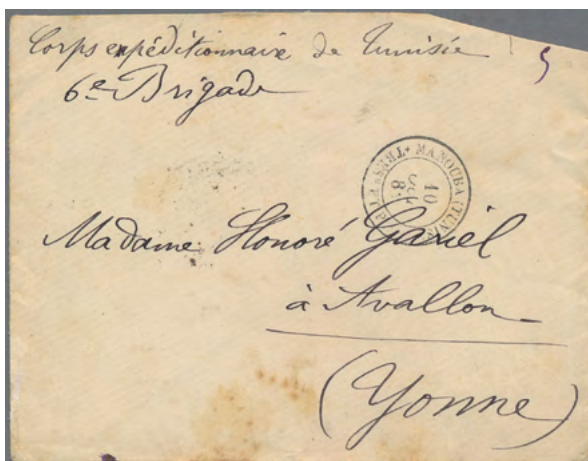 Corps expéditionnaire de Tunisie
6e Brigade
MANOUBA (TUNIS
10
8
Madame Honoré Gariel
à Avallon
(Yonne)